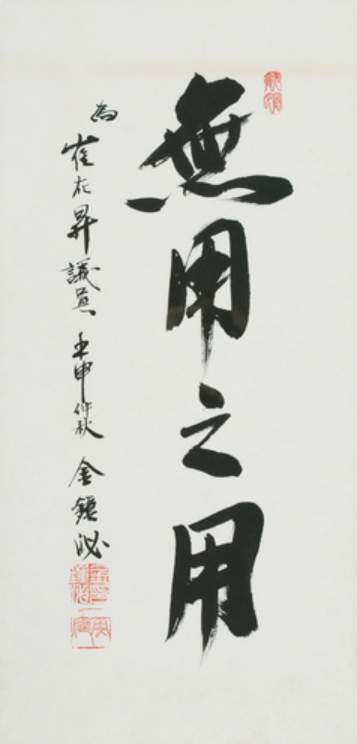 無用之用
為 崔在昇 議員 壬申仲秋 金鎮泌